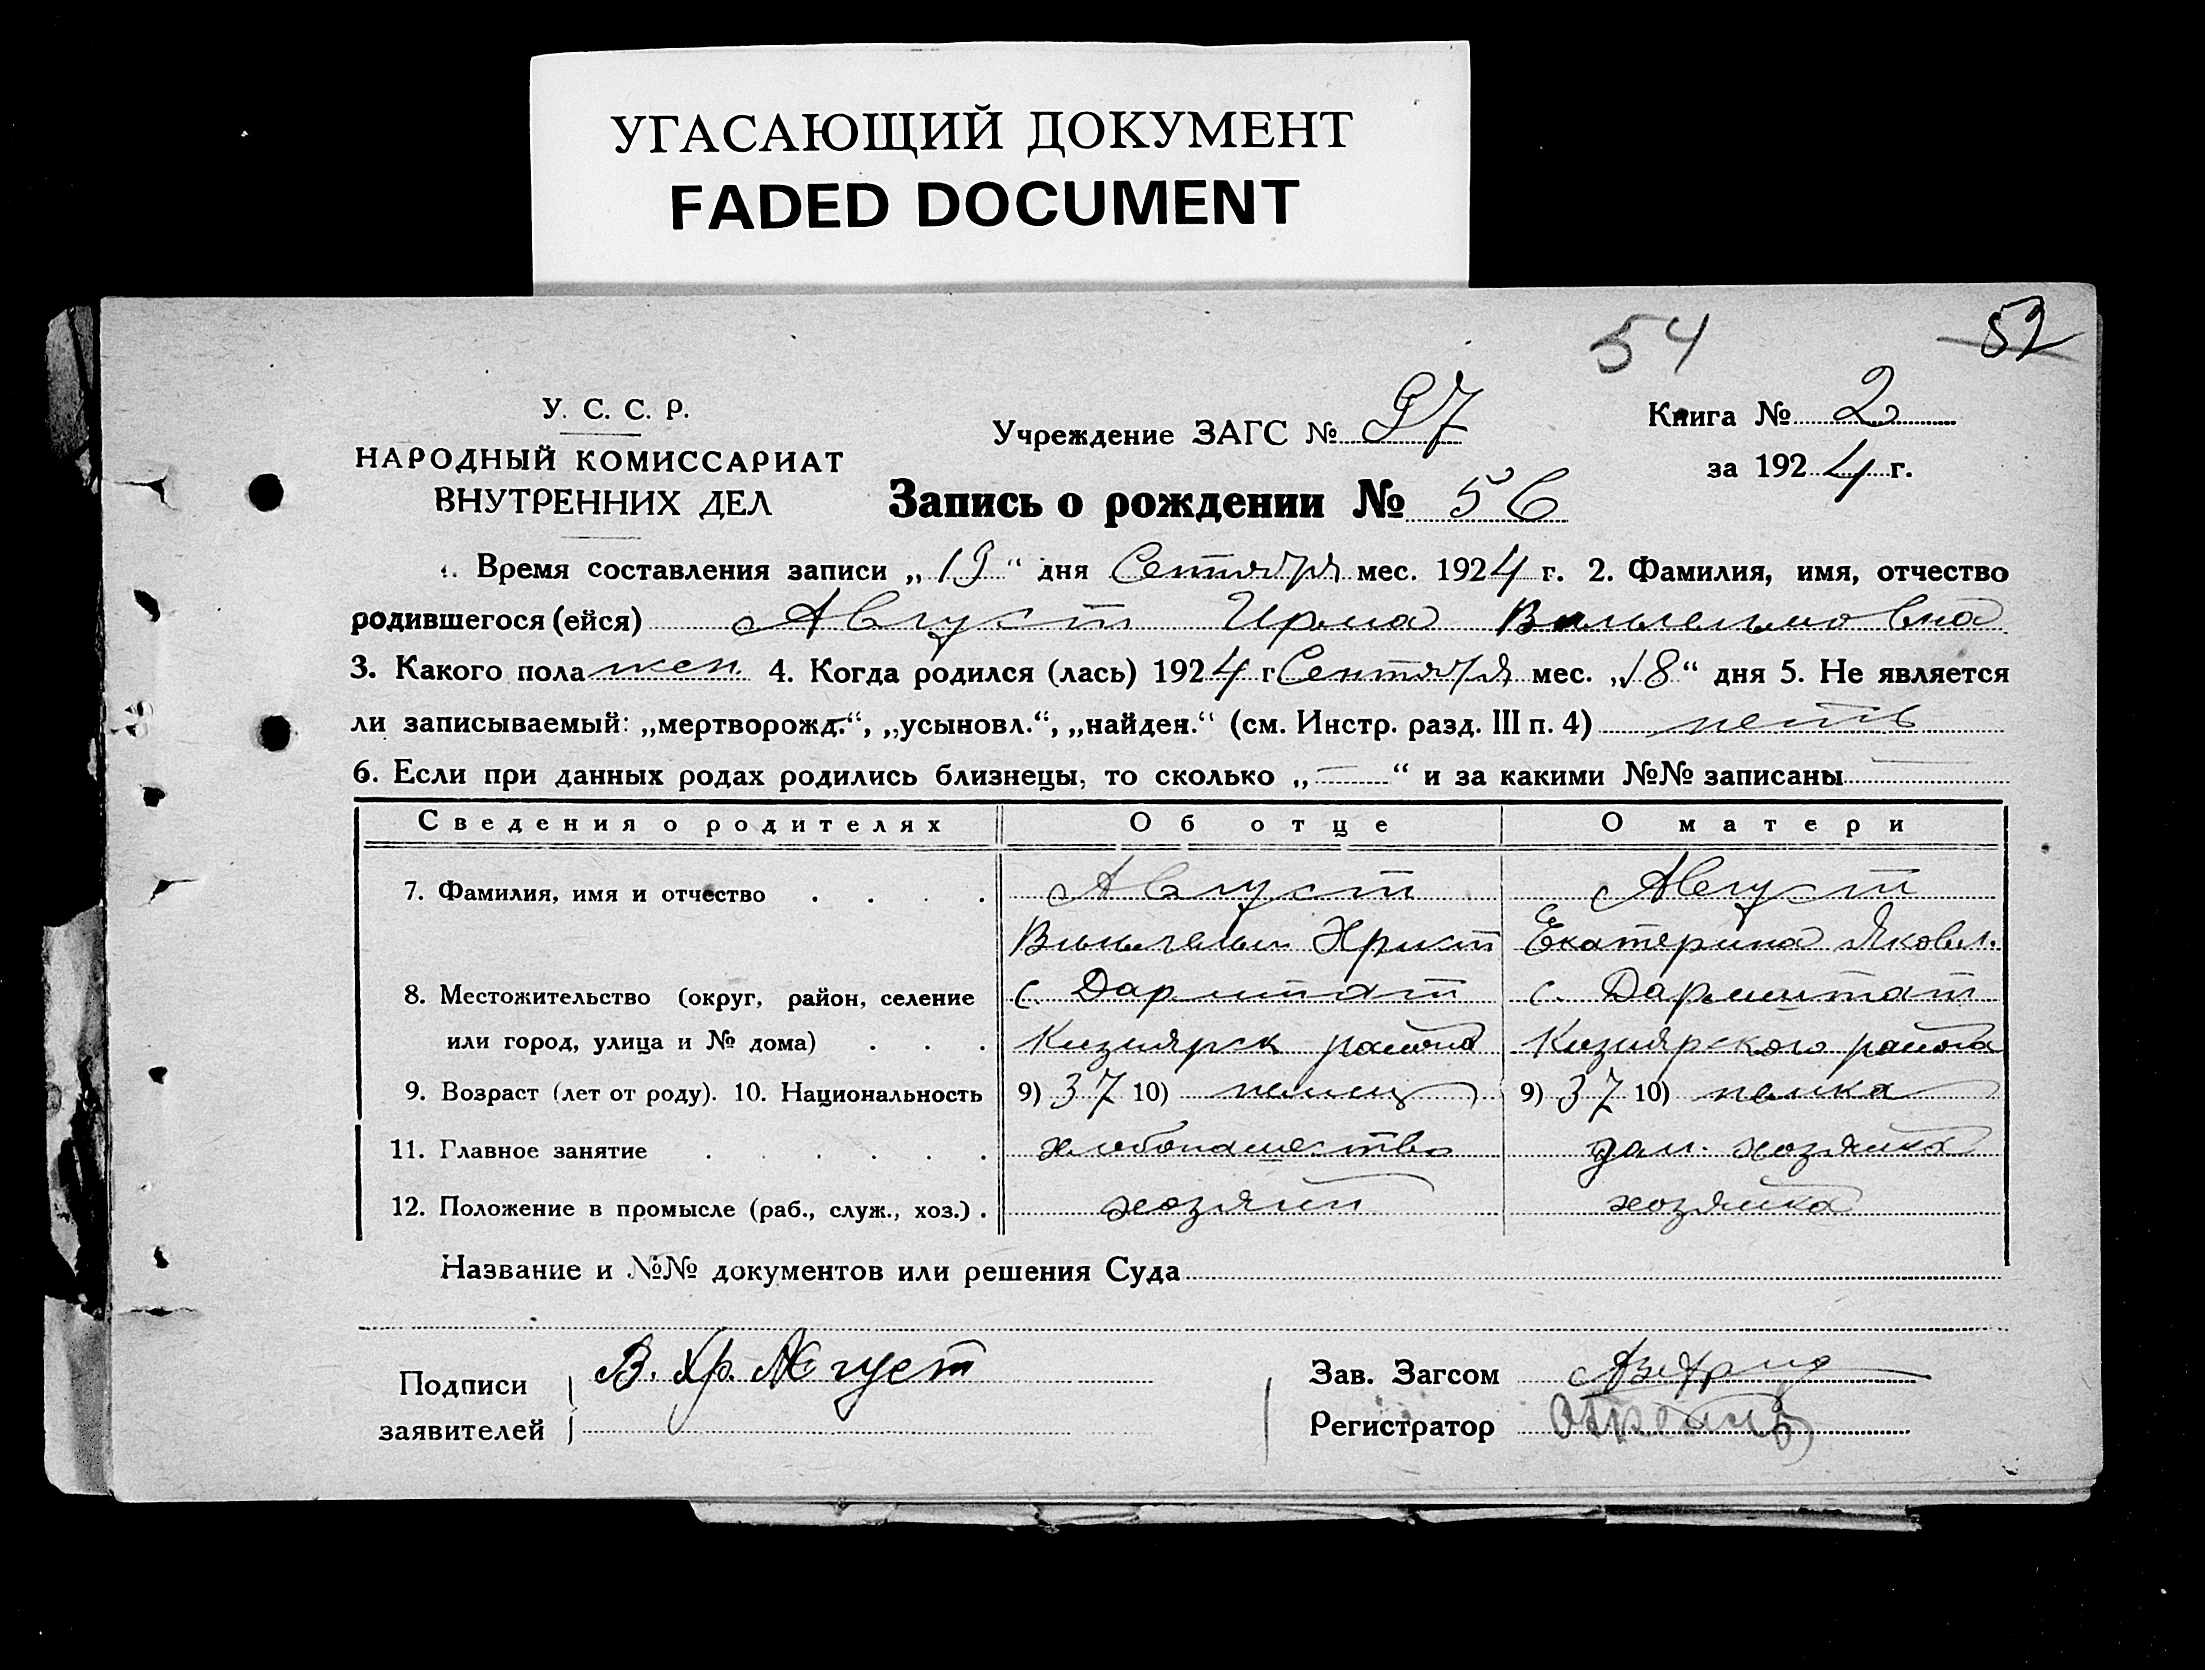 УГАСАЮЩИЙ ДОКУМЕНТ
FADED DOCUMENT
54
52
У. С. С. Р.
НАРОДНЫЙ КОМИССАРИАТ
ВНУТРЕННИХ ДЕЛ
Учреждение ЗАГС № 97
Книга № 2
за 1924 г.
Запись о рождении № 56
1. Время составления записи „19“ дня Сентября мес. 1924 г. 2. Фамилия, имя, отчество
родившегося (ейся) Август Ирма Вильгельмовна
3. Какого пола жен. 4. Когда родился (лась) 1924 г Сентября мес. „18“ дня 5. Не является
ли записываемый: „мертворожд.“, „усыновл.“, „найден.“ (см. Инстр. разд. III п. 4) нетъ
6. Если при данных родах родились близнецы, то сколько „—“ и за какими №№ записаны —
Сведения о родителях Об отце О матери
7. Фамилия, имя и отчество . . . . Август Август
Вильгельм Христ Екатерина Яковл.
8. Местожительство (округ, район, селение с. Дармштат с. Дармштат
или город, улица и № дома) . . . Кизиярск района Кизиярского района
9. Возраст (лет от роду). 10. Национальность 9) 37 10) немец 9) 37 10) немка
11. Главное занятие . . . . . . хлебопашество дом. хозяйка
12. Положение в промысле (раб., служ., хоз.) . хозяин хозяйка
Название и №№ документов или решения Суда
Подписи
заявителей
В. Хр. Август
Зав. Загсом
Регистратор